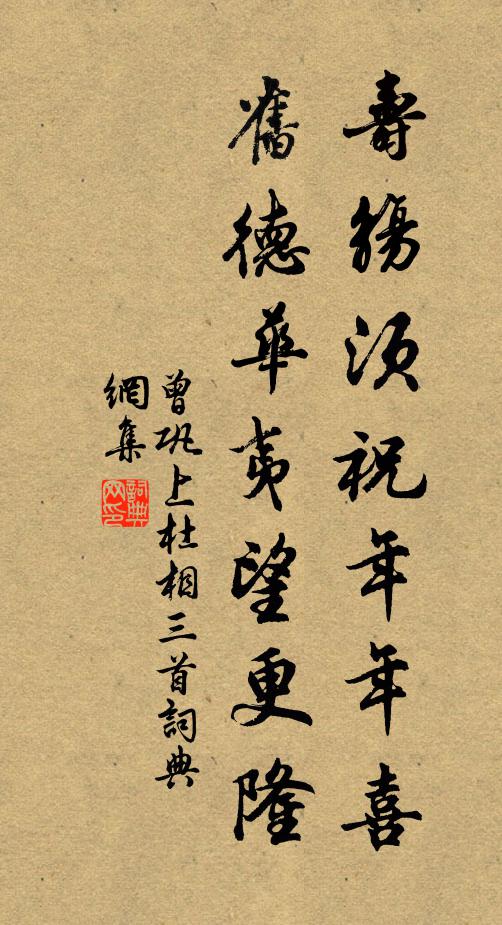 壽觴須祝年年喜
舊德華夷望更隆
曾巩上杜相三首詞典
網集
詞典網印